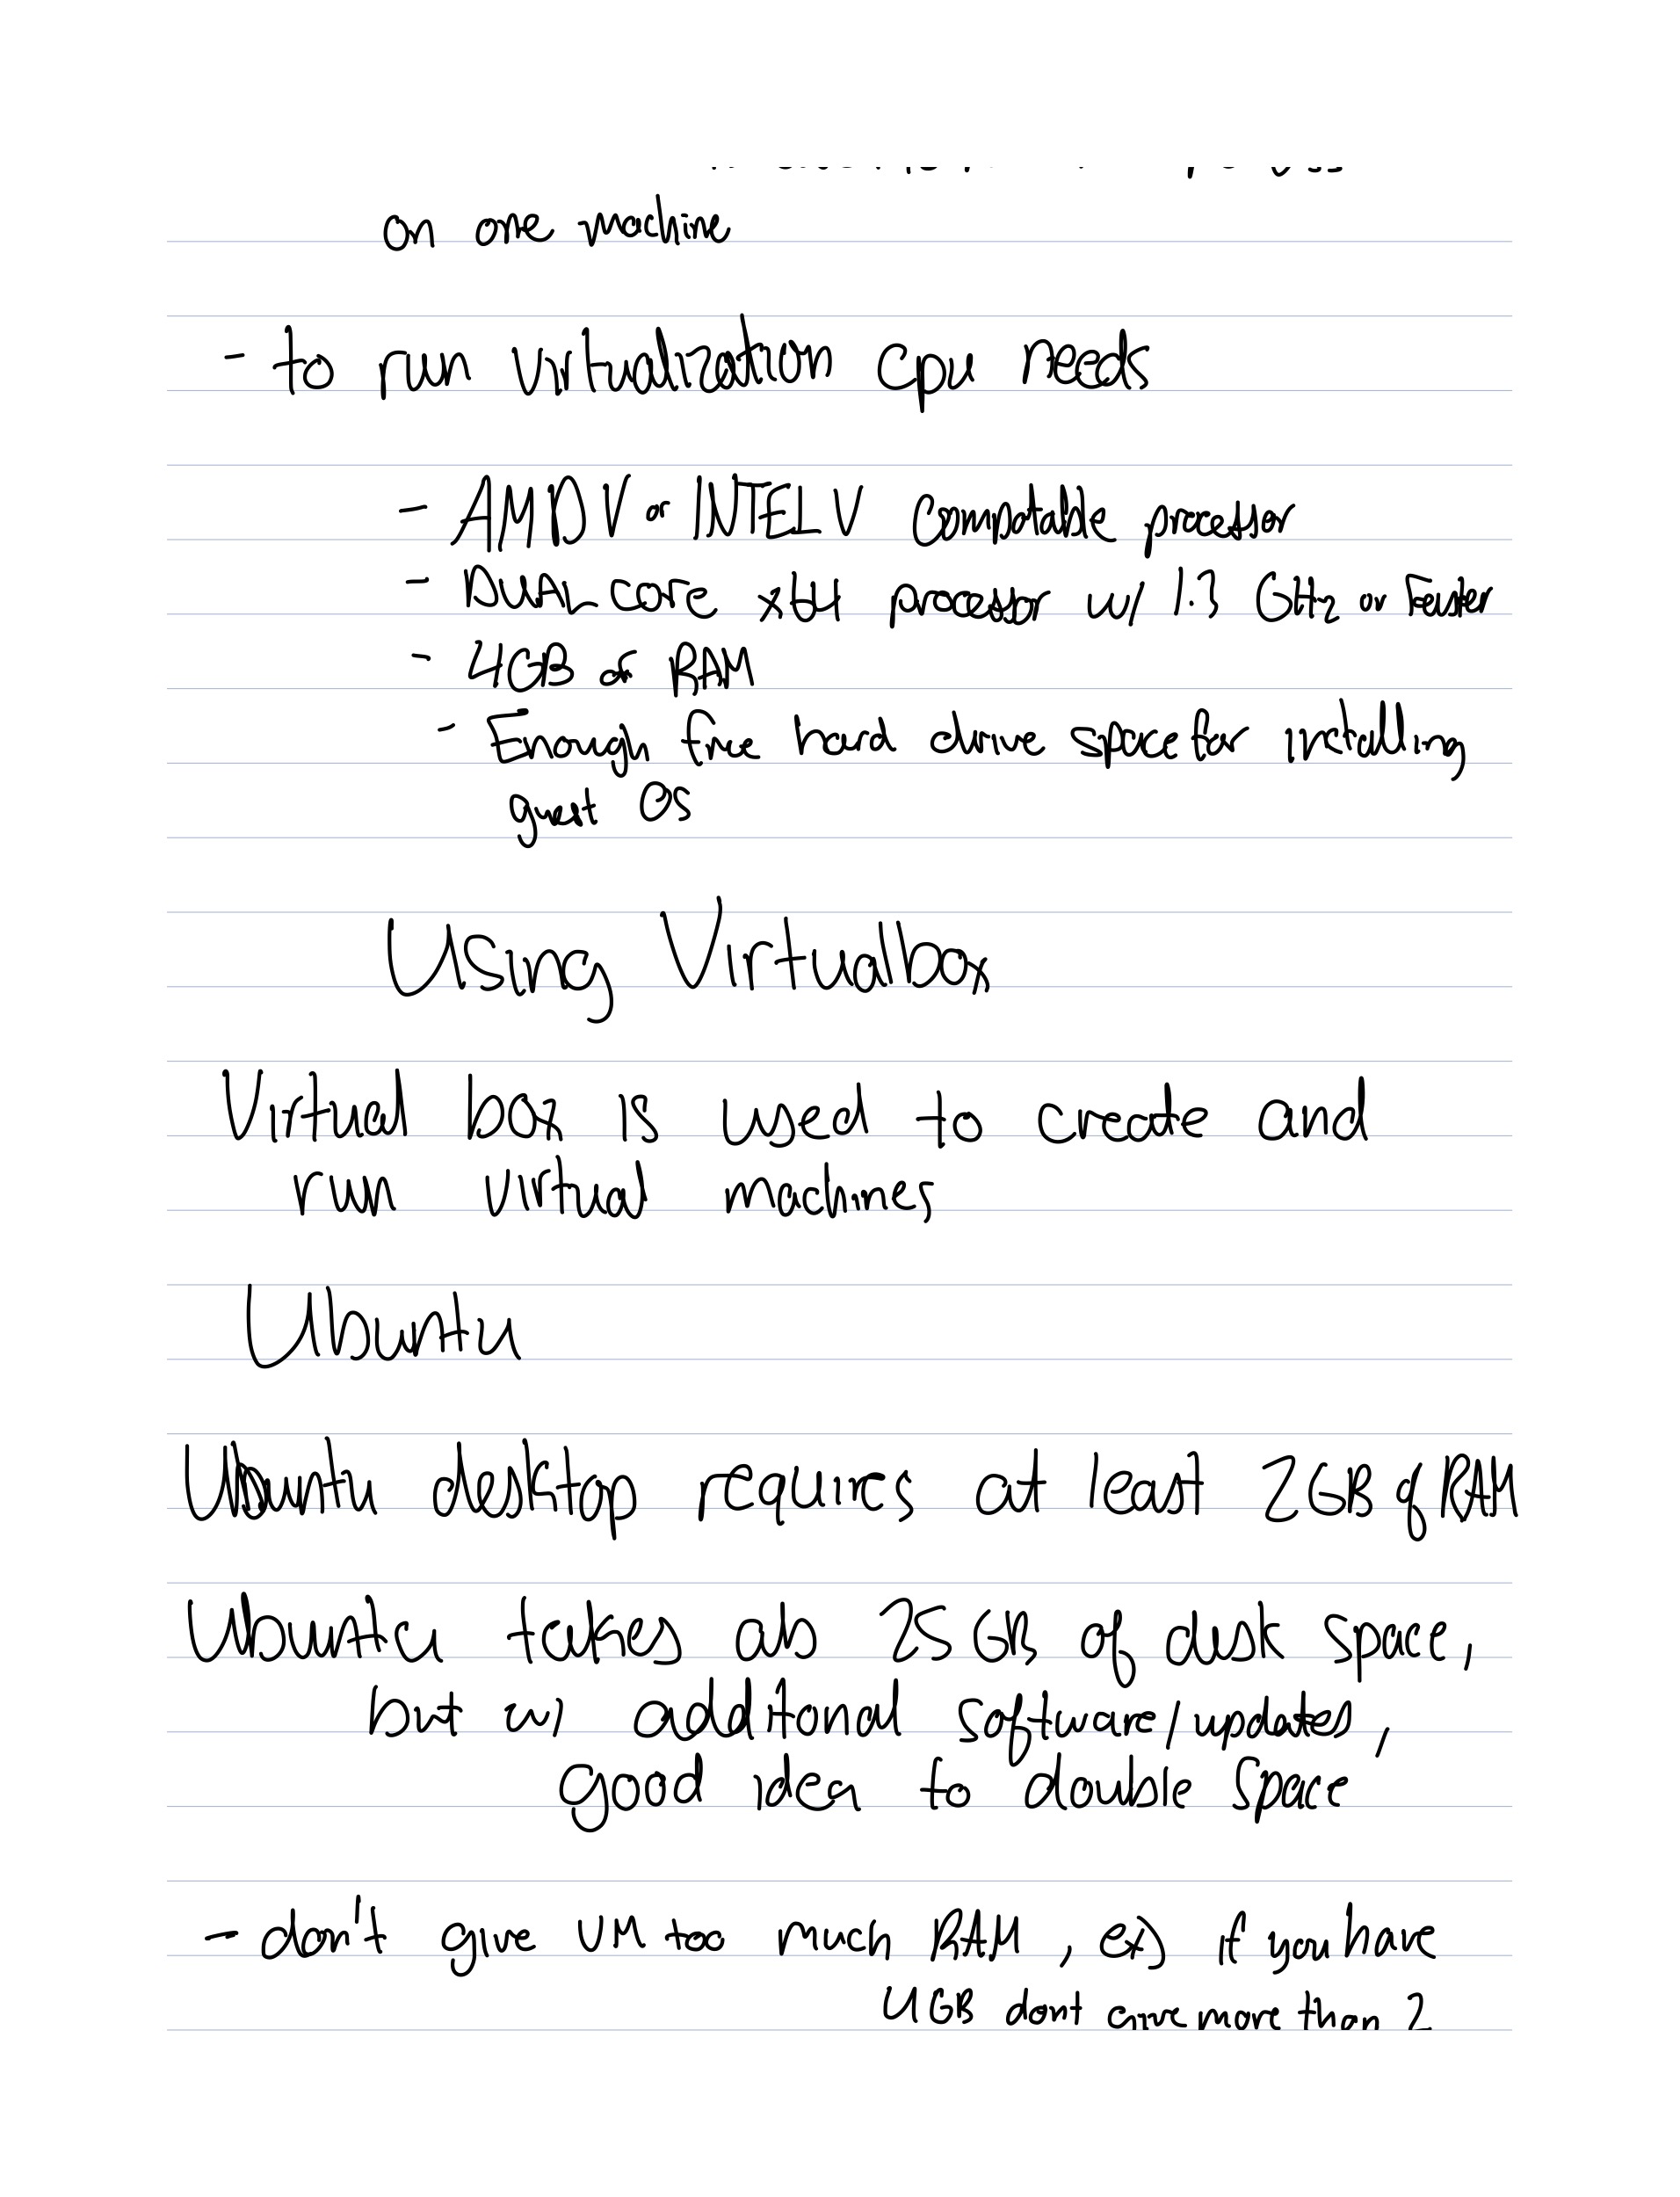 on one machine
- to run virtualization cpu needs
- AMDV or INTELV compatable processor
- DUAL core x64 processor w/ 1.3 GHz or Faster
- 4GB of RAM
- Enough free hard drive space for installing
guest OS
Using Virtualbox
Virtual box is used to create and
run virtual machines
Ubuntu
Ubuntu desktop requires at least 2GB of RAM
Ubuntu takes abo 25GB of disk space,
but w/ additional software/updates,
good idea to double space
- don't give VM too much RAM, ex) if you have
4GB dont give more than 2